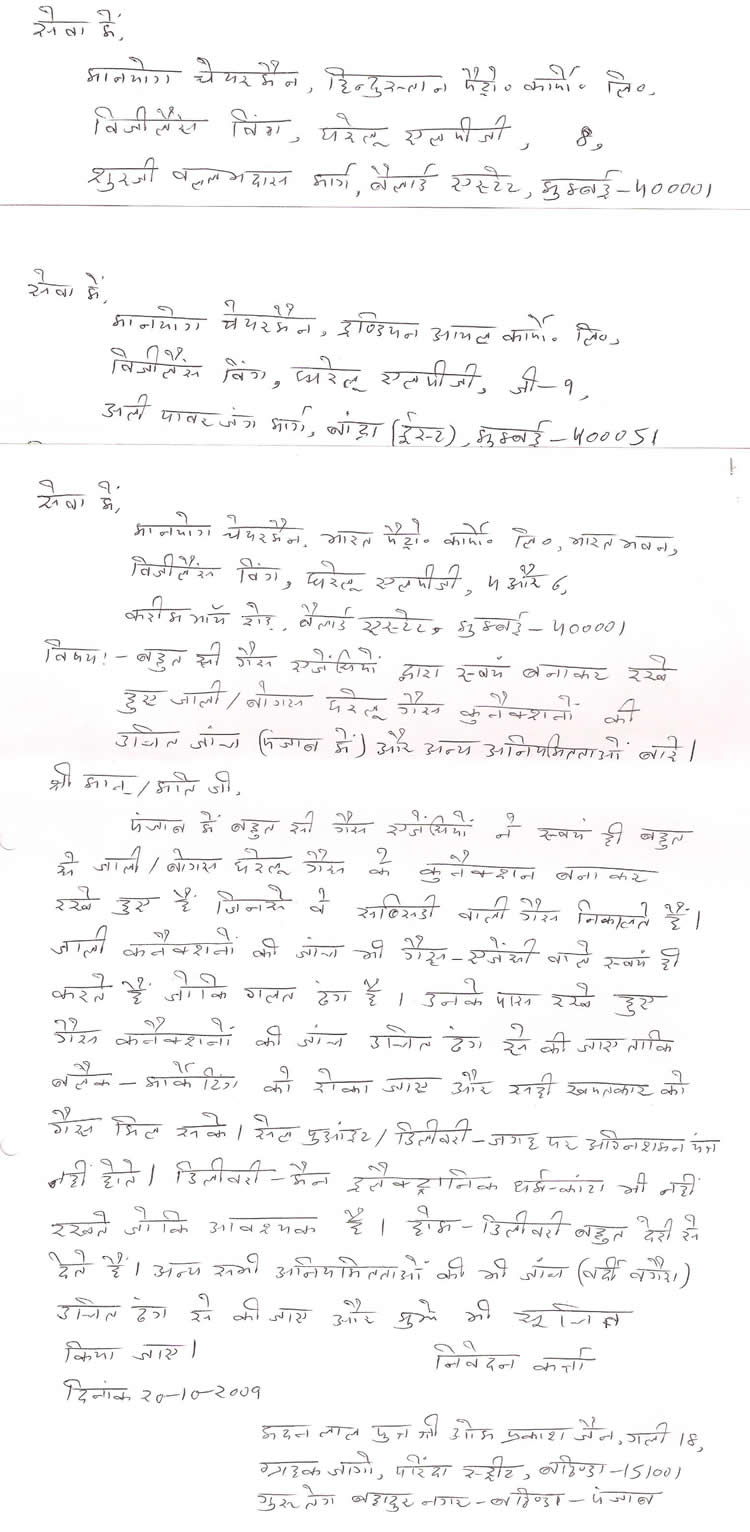 सेवा में,
मानयोग चेयरमैन, हिन्दुस्तान पैट्रो० कार्पो० लि०,
विजीलैंस विंग, घरेलू एलपीजी, 8,
शुरजी वल्लभदास मार्ग, बैलार्ड एस्टेट, मुम्बई-400001
सेवा में,
मानयोग चेयरमैन, इण्डियन आयल कार्पो० लि०,
विजीलैंस विंग, घरेलू एलपीजी, जी-9,
अली यावर जंग मार्ग, बांद्रा (ईस्ट), मुम्बई-400051
सेवा में,
मानयोग चेयरमैन, भारत पैट्रो० कार्पो० लि०, भारत भवन,
विजीलैंस विंग, घरेलू एलपीजी, 4 और 6,
करीमभॉय रोड, बैलार्ड एस्टेट, मुम्बई-400001
विषय:- बहुत सी गैस एजेंसियों द्वारा स्वयं बनाकर रखे
हुए जाली/बोगस घरेलू गैस कुनैक्शनों की
उचित जांच (पंजाब में) और अन्य अनियमितताओं बारे।
श्री मान/मति जी,
पंजाब में बहुत सी गैस एजेंसियों ने स्वयं ही बहुत
से जाली/बोगस घरेलू गैस के कुनैक्शन बना कर
रखे हुए हैं जिनसे वे सबिसडी वाली गैस निकालते हैं।
जाली कनैक्शनों की जांच भी गैस-एजेंसी वाले स्वयं ही
करते हैं जोकि गलत ढंग है। उनके पास रखे हुए
गैस कनैक्शनों की जांच उचित ढंग से की जाए ताकि
बलैक-मार्केटिंग को रोका जाए और सही खपतकार को
गैस मिल सके। सेल पुआंइट/डिलीवरी-जगह पर अग्निशमन यंत्र
नहीं होते। डिलीवरी-मैन इलैक्ट्रानिक धर्म-कांटा भी नहीं
रखते जोकि आवश्यक है। होम-डिलीवरी बहुत देरी से
देते हैं। अन्य सभी अनियमितताओं की भी जांच (वर्दी वगैरा)
उचित ढंग से की जाए और मुझे भी सूचित
किया जाए।
निवेदन कर्त्ता
दिनांक 20-10-2009
मदन लाल पुत्र श्री ओम प्रकाश जैन, गली 18,
ग्राहक जागो, परिंदा स्ट्रीट, बठिण्डा-151001
गुरू तेग बहादुर नगर-बठिण्डा-पंजाब